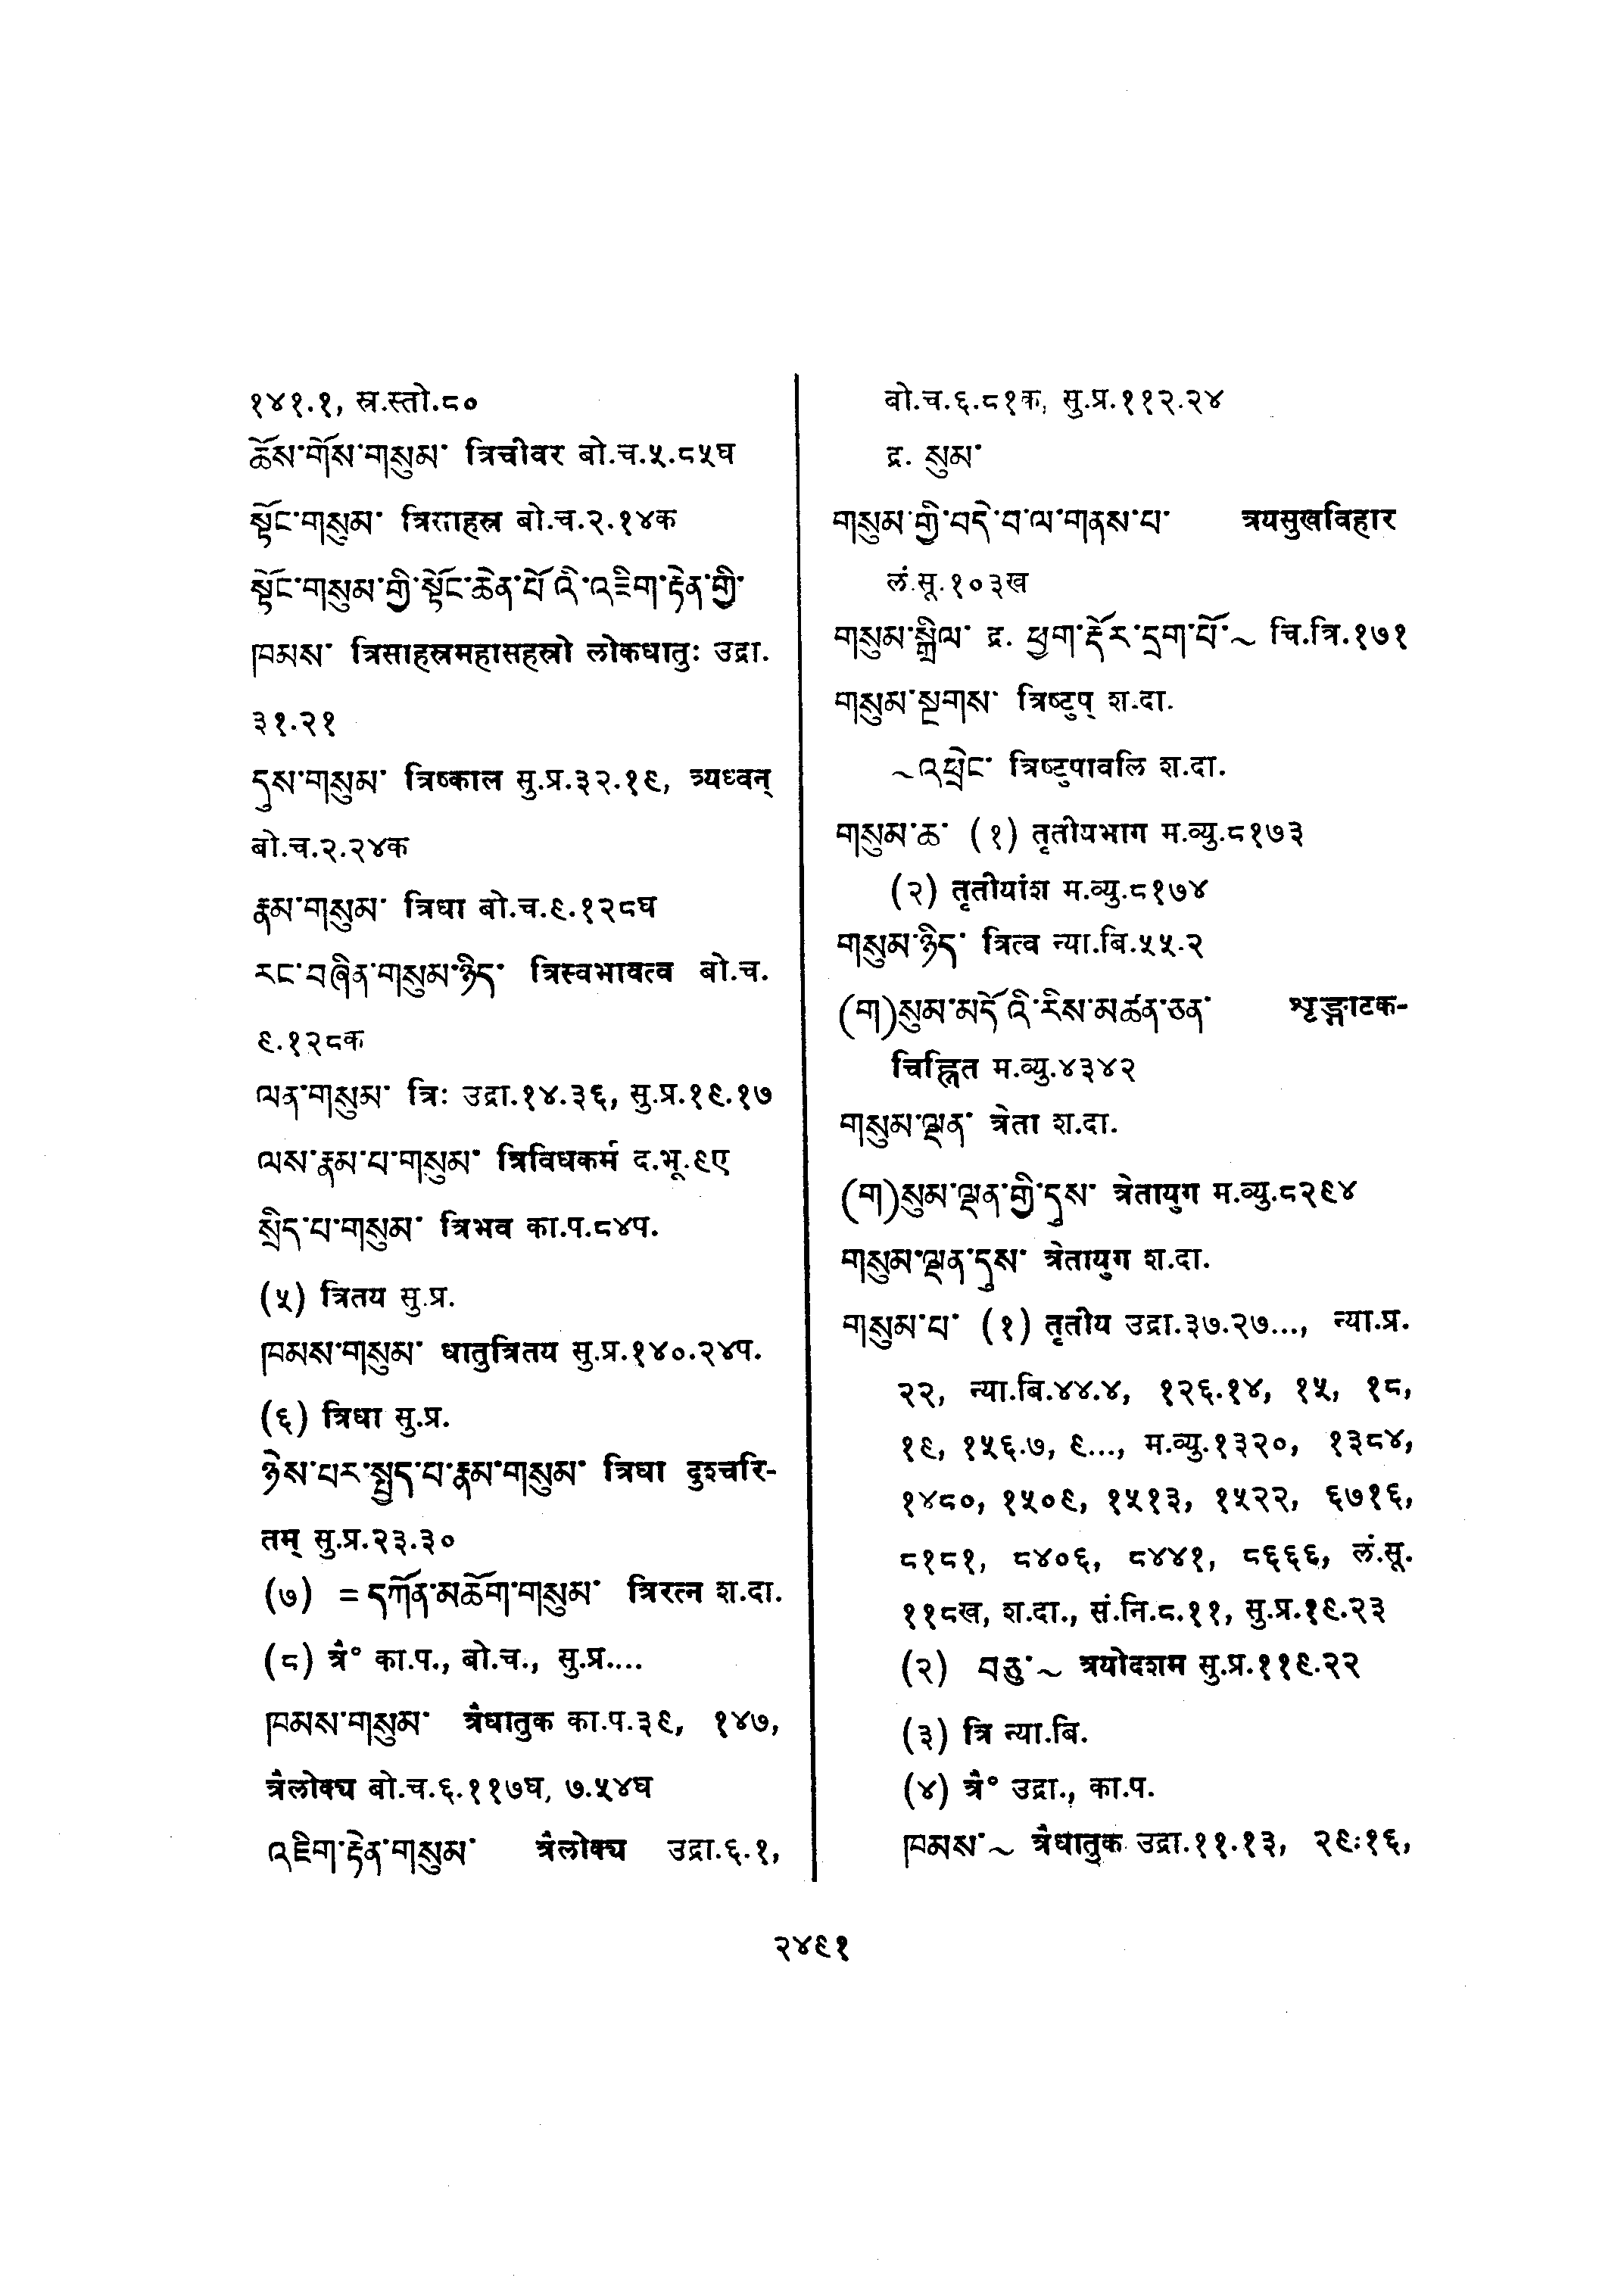 १४१.१, स्र.स्तो.८०
ཆོས་གོས་གསུམ་ त्रिचीवर बो.च.५.८५घ
སྟོང་གསུམ་ त्रिसाहस्र बो.च.२.१४क
སྟོང་གསུམ་གྱི་སྟོང་ཆེན་པོ་འི་འཇིག་རྟེན་གྱི་
ཁམས་ त्रिसाहस्रमहासहस्रो लोकधातुः उद्रा.
३१.२१
དུས་གསུམ་ त्रिष्काल सु.प्र.३२.१९, त्र्यध्वन्
बो.च.२.२४क
རྣམ་གསུམ་ त्रिधा बो.च.९.१२८घ
རང་བཞིན་གསུམ་ཉིད་ त्रिस्वभावत्व बो.च.
९.१२८क
ལན་གསུམ་ त्रिः उद्रा.१४.३६, सु.प्र.१९.१७
ལས་རྣམ་པ་གསུམ་ त्रिविधकर्म द.भू.९ए
སྲིད་པ་གསུམ་ त्रिभव का.प.८४प.
(५) त्रितय सु.प्र.
ཁམས་གསུམ་ धातुत्रितय सु.प्र.१४०.२४प.
(६) त्रिधा सु.प्र.
ཉེས་པར་སྤྱད་པ་རྣམ་གསུམ་ त्रिधा दुश्चरि-
तम् सु.प्र.२३.३०
(७) = དཀོན་མཆོག་གསུམ་ त्रिरत्न श.दा.
(८) त्रै° का.प., बो.च., सु.प्र....
ཁམས་གསུམ་ त्रैधातुक का.प.३९, १४७,
त्रैलोक्य बो.च.६.११७घ, ७.५४घ
འཇིག་རྟེན་གསུམ་ त्रैलोक्य उद्रा.६.१,
बो.च.६.८१क, सु.प्र.११२.२४
द्र. སུམ་
གསུམ་གྱི་བདེ་བ་ལ་གནས་པ་ त्रयसुखविहार
लं.सू.१०३ख
གསུམ་སྒྲིལ་ द्र. ཕྱག་རྡོར་དྲག་པོ་~ चि.त्रि.१७१
གསུམ་སྔགས་ त्रिष्टुप् श.दा.
~འཕྲེང་ त्रिष्टुपावलि श.दा.
གསུམ་ཆ་ (१) तृतीयभाग म.व्यु.८१७३
(२) तृतीयांश म.व्यु.८१७४
གསུམ་ཉིད་ त्रित्व न्या.बि.५५.२
(ག)སུམ་མདོ་འི་རིས་མཚན་ཅན་ शृङ्गाटक-
चिह्नित म.व्यु.४३४२
གསུམ་ལྡན་ त्रेता श.दा.
(ག)སུམ་ལྡན་གྱི་དུས་ त्रेतायुग म.व्यु.८२९४
གསུམ་ལྡན་དུས་ त्रेतायुग श.दा.
གསུམ་པ་ (१) तृतीय उद्रा.३७.२७..., न्या.प्र.
२२, न्या.बि.४४.४, १२६.१४, १५, १८,
१९, १५६.७, ९..., म.व्यु.१३२०, १३८४,
१४८०, १५०९, १५१३, १५२२, ६७१६,
८१८१, ८४०६, ८४४१, ८६६६, लं.सू.
११८ख, श.दा., सं.नि.८.११, सु.प्र.१९.२३
(२) བཅུ་~ त्रयोदशम सु.प्र.११९.२२
(३) त्रि न्या.बि.
(४) त्रै° उद्रा., का.प.
ཁམས་~ त्रैधातुक उद्रा.११.१३, २९:१६,
२४९१